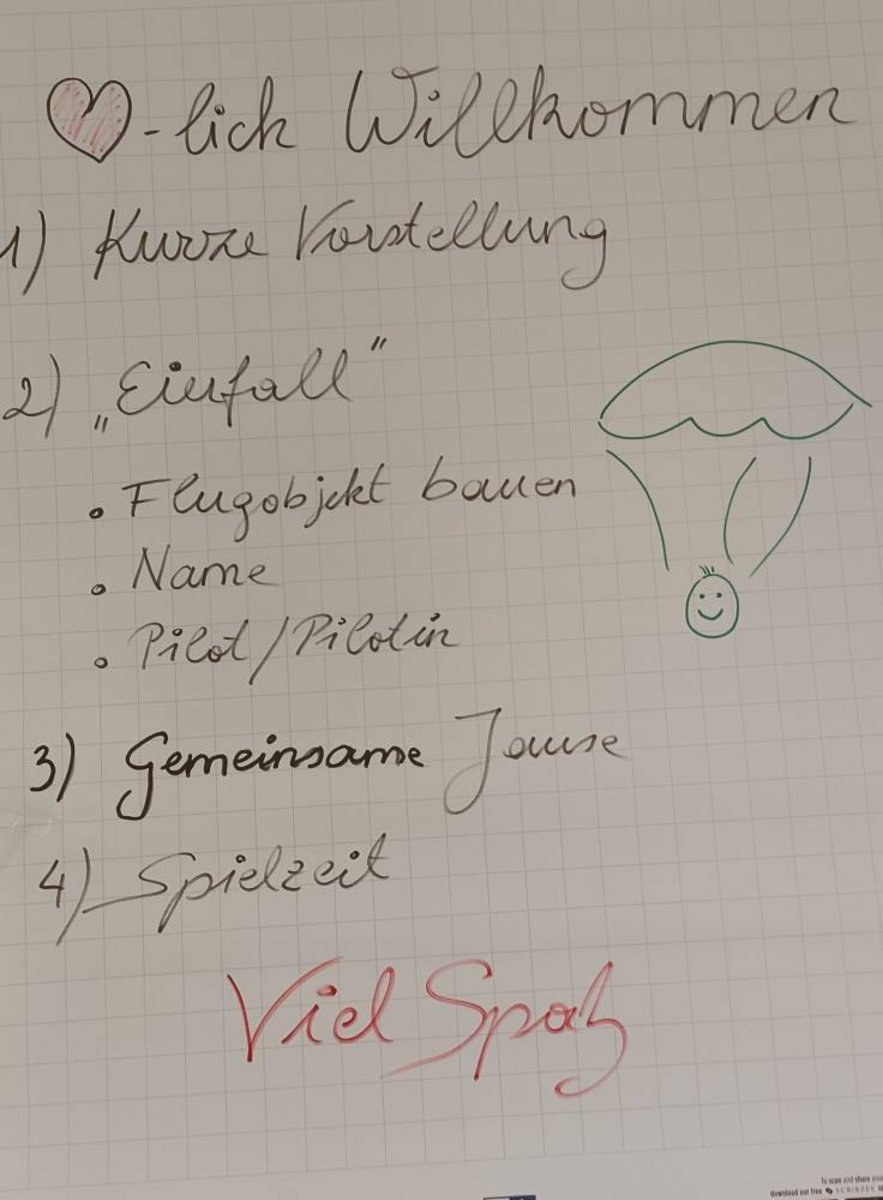 -lich Willkommen
1) Kurze Vorstellung
2) „Einfall"
• Flugobjekt bauen
• Name
• Pilot/Pilotin
3) Gemeinsame Jause
4) Spielzeit
Viel Spaß
To scan and share
download our free SCRIBZEE